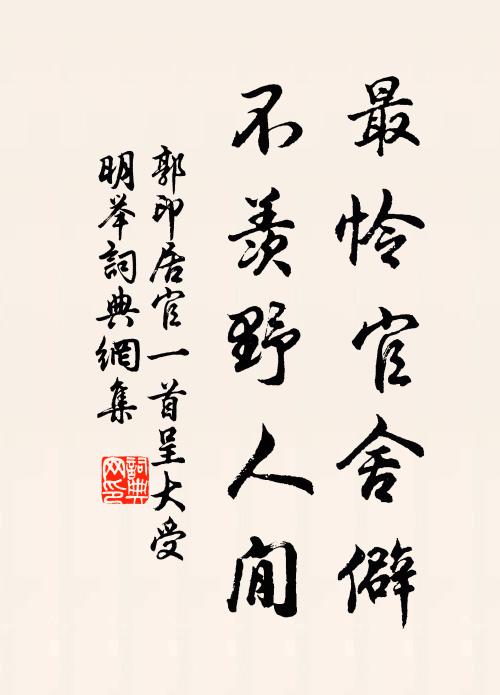 最怜官舍僻
不羡野人閒
郭印居官一首呈大受
明举詞典網集
詞典网印